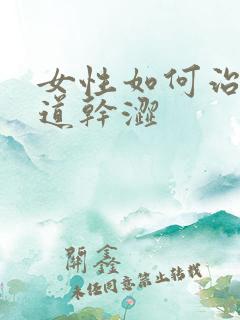 女性如何治
道幹澀
開鑫
未經同意禁止轉載